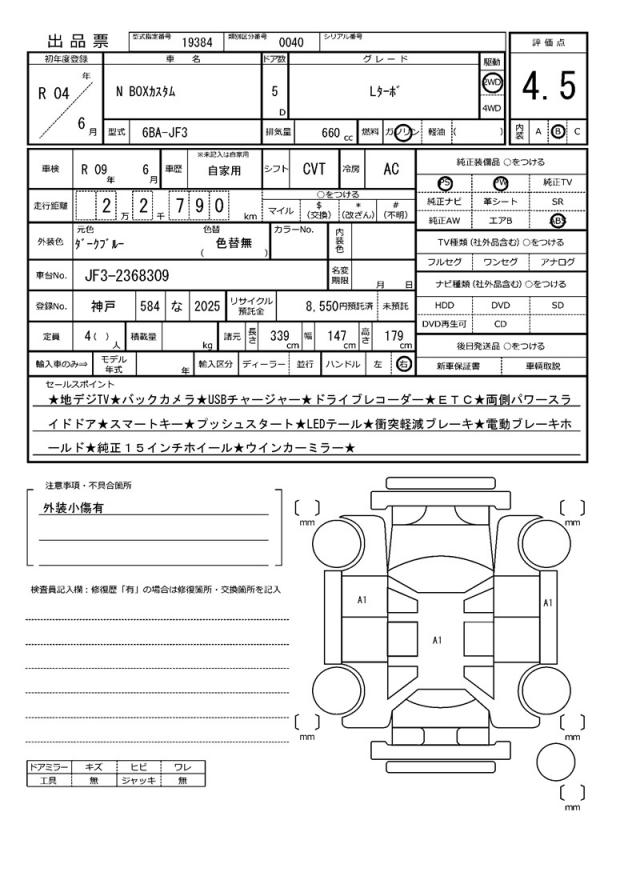 出品票 型式指定番号 19384 類別区分番号 0040 シリアル番号
評価点
4.5
内装 A B C
初年度登録 車名 ドア数 グレード 駆動
R 04 年 6 月 N BOXカスタム 5 D Lターボ 2WD
4WD
型式 6BA-JF3 排気量 660 cc 燃料 ガソリン 軽油 ( )
車検 R 09 年 6 月 車歴 ※未記入は自家用 自家用 シフト CVT 冷房 AC
走行距離 2 万 2 千 7 9 0 km
○をつける
マイル $(交換) *(改ざん) #(不明)
外装色 元色 ダークブルー 色替 色替無 ( ) カラーNo. 内装色
車台No. JF3-2368309 名変期限 月 日
登録No. 神戸 584 な 2025 リサイクル預託金 8,550円預託済 未預託
定員 4( ) 人 積載量 kg 諸元 長さ 339 cm 幅 147 cm 高さ 179 cm
輸入車のみ⇒ モデル年式 年 輸入区分 ディーラー 並行 ハンドル 左 右
純正装備品 ○をつける
PS PW 純正TV
純正ナビ 革シート SR
純正AW エアB ABS
TV種類 (社外品含む) ○をつける
フルセグ ワンセグ アナログ
ナビ種類 (社外品含む) ○をつける
HDD DVD SD
DVD再生可 CD
後日発送品 ○をつける
新車保証書 車輌取説
セールスポイント
★地デジTV★バックカメラ★USBチャージャー★ドライブレコーダー★ＥＴＣ★両側パワースラ
イドドア★スマートキー★プッシュスタート★LEDテール★衝突軽減ブレーキ★電動ブレーキホ
ールド★純正１５インチホイール★ウインカーミラー★
注意事項・不具合箇所
外装小傷有
検査員記入欄：修復歴「有」の場合は修復箇所・交換箇所を記入
ドアミラー キズ ヒビ ワレ
工具 無 ジャッキ 無
mm
mm
A1
A1
A1
mm
mm
mm